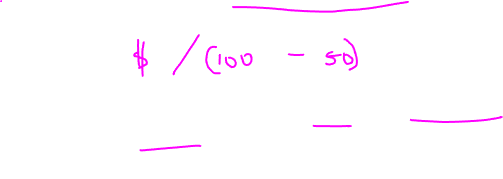 $ /(100 - 50)